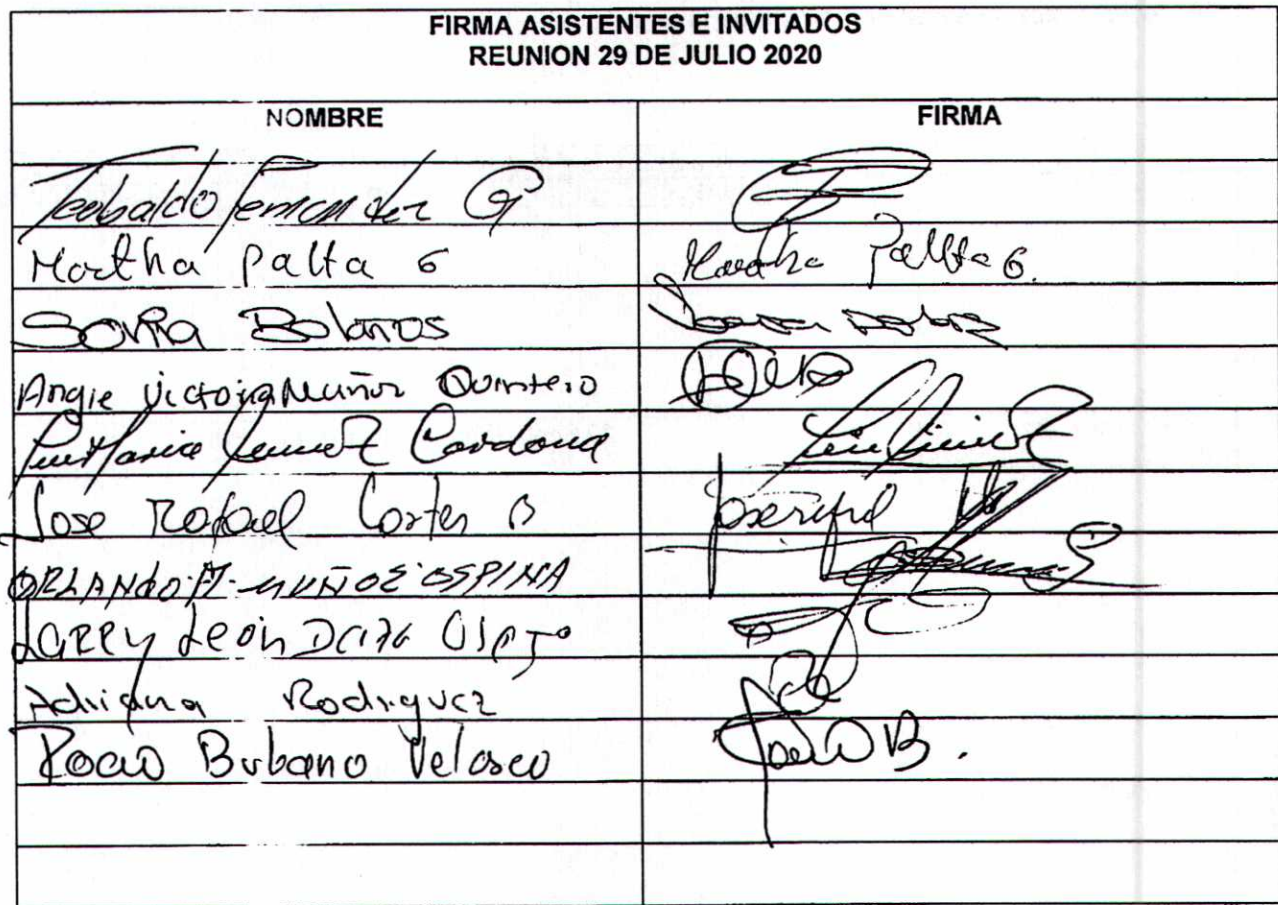 FIRMA ASISTENTES E INVITADOS
REUNION 29 DE JULIO 2020
NOMBRE FIRMA
Teobaldo Fernandez G
Martha Palta G Martha Palta G.
Sonia Bolaños
Angie Victoria Muñoz Quintero
Luz Maria Jimenez Cardona
Jose Rafael Cortes B
ORLANDO A. MUÑOZ OSPINA
Larry Leon Daza
Adriana Rodriguez
Rocio Burbano Velasco Rocio B.